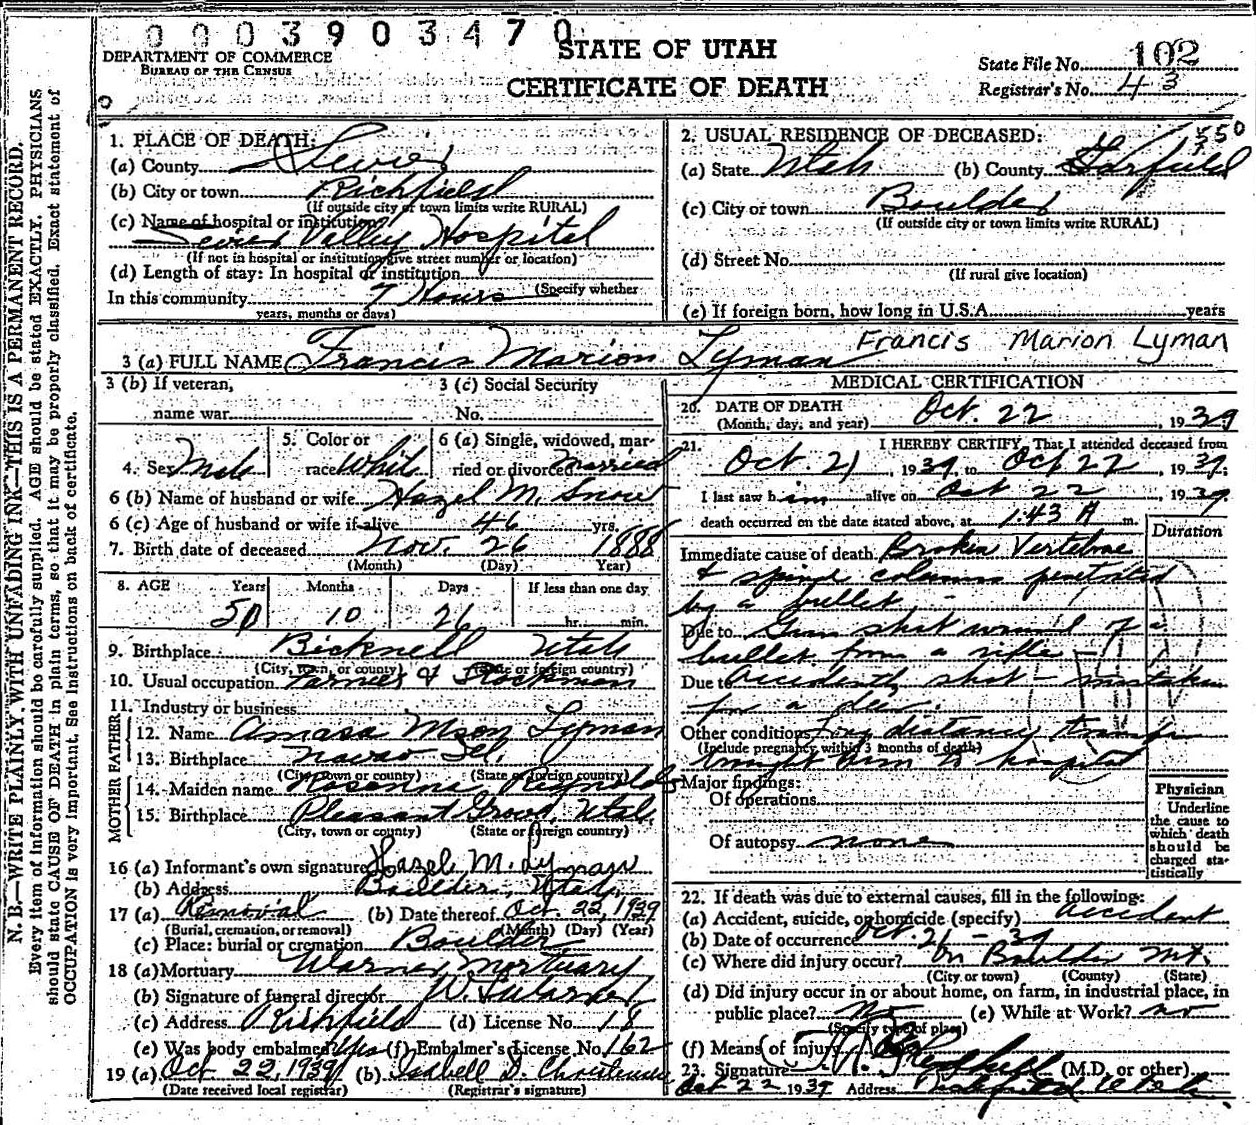 0003903470
STATE OF UTAH
CERTIFICATE OF DEATH
DEPARTMENT OF COMMERCE
BUREAU OF THE CENSUS
State File No. 102
Registrar's No. 43
N. B.—WRITE PLAINLY WITH UNFADING INK—THIS IS A PERMANENT RECORD.
Every item of information should be carefully supplied. AGE should be stated EXACTLY. PHYSICIANS
should state CAUSE OF DEATH in plain terms, so that it may be properly classified. Exact statement of
OCCUPATION is very important. See Instructions on back of certificate.
1. PLACE OF DEATH:
(a) County Sevier
(b) City or town Richfield
(If outside city or town limits write RURAL)
(c) Name of hospital or institution
Sevier Valley Hospital
(If not in hospital or institution give street number or location)
(d) Length of stay: In hospital or institution
(Specify whether
In this community 7 Hours
years, months or days)
2. USUAL RESIDENCE OF DECEASED: 550
(a) State Utah (b) County Garfield
(c) City or town Boulder
(If outside city or town limits write RURAL)
(d) Street No.
(If rural give location)
(e) If foreign born, how long in U.S.A. years
3 (a) FULL NAME Francis Marion Lyman Francis Marion Lyman
3 (b) If veteran,
name war
3 (c) Social Security
No.
4. Sex Male
5. Color or
race White
6 (a) Single, widowed, mar-
ried or divorced married
6 (b) Name of husband or wife Hazel M. Snow
6 (c) Age of husband or wife if alive 46 yrs.
7. Birth date of deceased Nov. 26 1888
(Month) (Day) Year)
8. AGE Years Months Days If less than one day
50 10 26 hr. min.
9. Birthplace Bicknell Utah
(City, town, or county) (State or foreign country)
10. Usual occupation Farmer & Stockman
11. Industry or business
FATHER
12. Name Amasa Mson Lyman
13. Birthplace Navoo Ill.
(City, town or county) (State or foreign country)
MOTHER
14. Maiden name Rosanna Reynolds
15. Birthplace Pleasant Grove, Utah
(City, town or county) (State or foreign country)
16 (a) Informant's own signature Hazel M. Lyman
(b) Address Boulder, Utah
17 (a) Removal (b) Date thereof Oct. 22, 1939
(Burial, cremation, or removal) (Month) (Day) (Year)
(c) Place: burial or cremation Boulder
18 (a) Mortuary Warner Mortuary
(b) Signature of funeral director
(c) Address Richfield (d) License No. 18
(e) Was body embalmed Yes (f) Embalmer's License No. 162
19 (a) Oct 22, 1939 (b) Isabell D. Christensen
(Date received local registrar) (Registrar's signature)
MEDICAL CERTIFICATION
20. DATE OF DEATH Oct. 22, 1939
(Month, day, and year)
21. I HEREBY CERTIFY, That I attended deceased from
Oct. 21, 1939, to Oct 22, 1939;
I last saw him alive on Oct 22, 1939
death occurred on the date stated above, at 1:43 A m.
Duration
Immediate cause of death Broken Vertebrae
& spinal column penetrated
by a bullet
Due to Gun shot wound of a
bullet from a rifle
Due to Accidently shot - mistaken
for a deer.
Other conditions Long distancy transfer
(Include pregnancy within 3 months of death)
brought him to hospital
Major findings:
Of operations
Of autopsy none
Physician
Underline
the cause to
which death
should be
charged sta-
tistically
22. If death was due to external causes, fill in the following:
(a) Accident, suicide, or homicide (specify) Accident
(b) Date of occurrence Oct. 21 - 39
(c) Where did injury occur? On Boulder Mt.
(City or town) (County) (State)
(d) Did injury occur in or about home, on farm, in industrial place, in
public place? (e) While at Work? no
(Specify type of place)
(f) Means of injury
23. Signature (M.D. or other)
Oct 22 1939 Address Richfield Utah